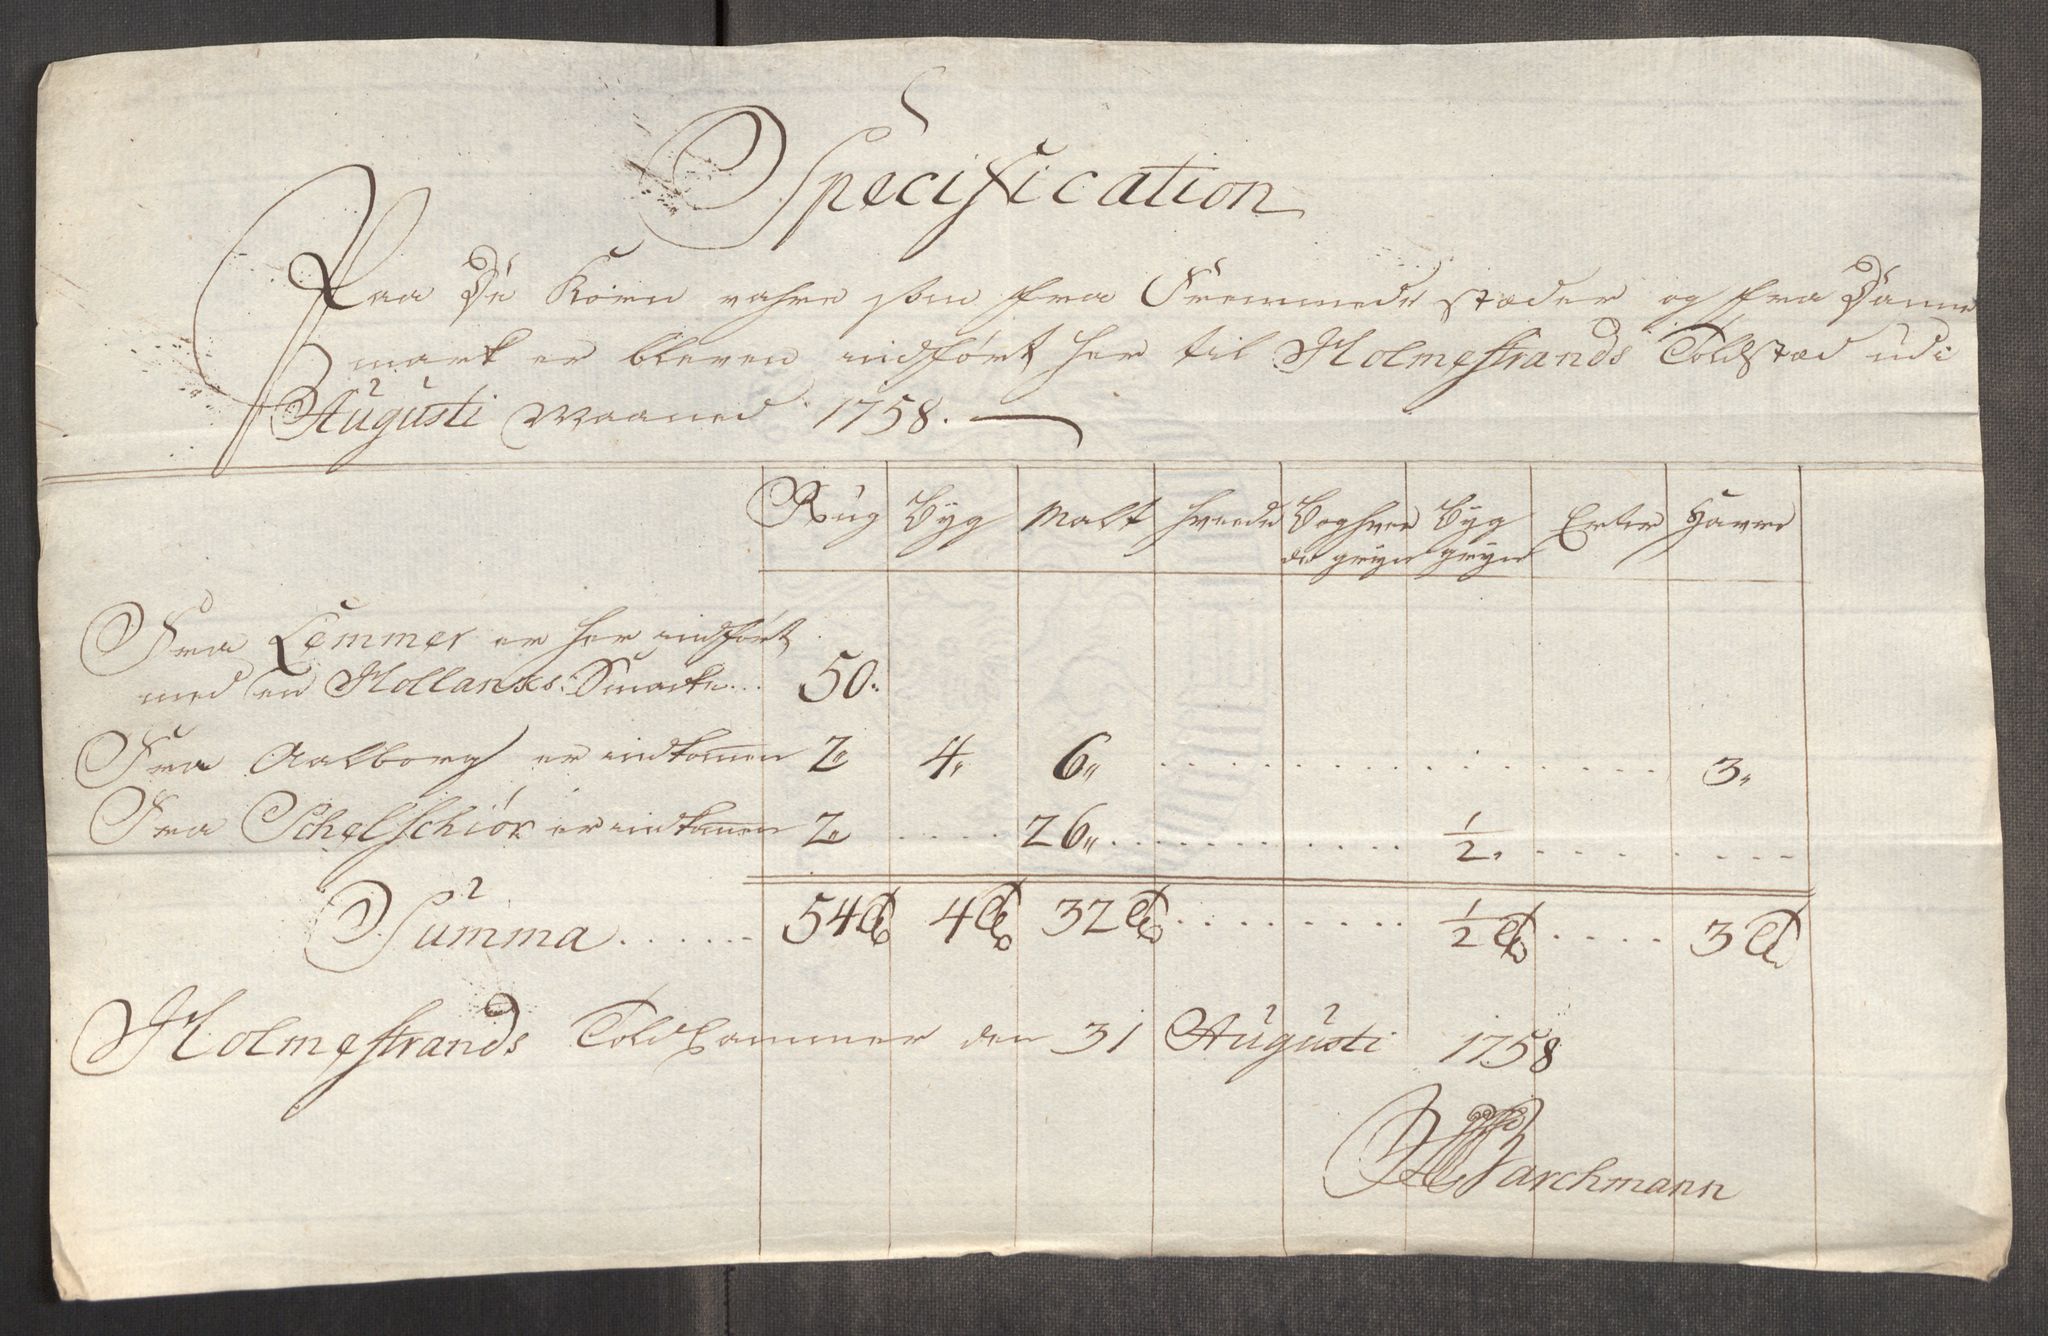 Specification
Paa De Korn vahre som fra Fremmede stæder og fra Danne
mark er bleven indført her til Holmestrands Toldstæd udi
Augusti Maaned 1758.
Rug Byg Malt Hvede Boghve Byg Erter Havre
de gryn gryn
Fra Lemmer er her indført
med en Hollansk Smacke... 50.
Fra Aalborg er indkommen 2 4 6 3
Fra Schelschiör er indkommen 2 26 1/2
Summa 54 4 32 1/2 3
Holmestrands Toldkammer den 31 Augusti 1758
Parchmann